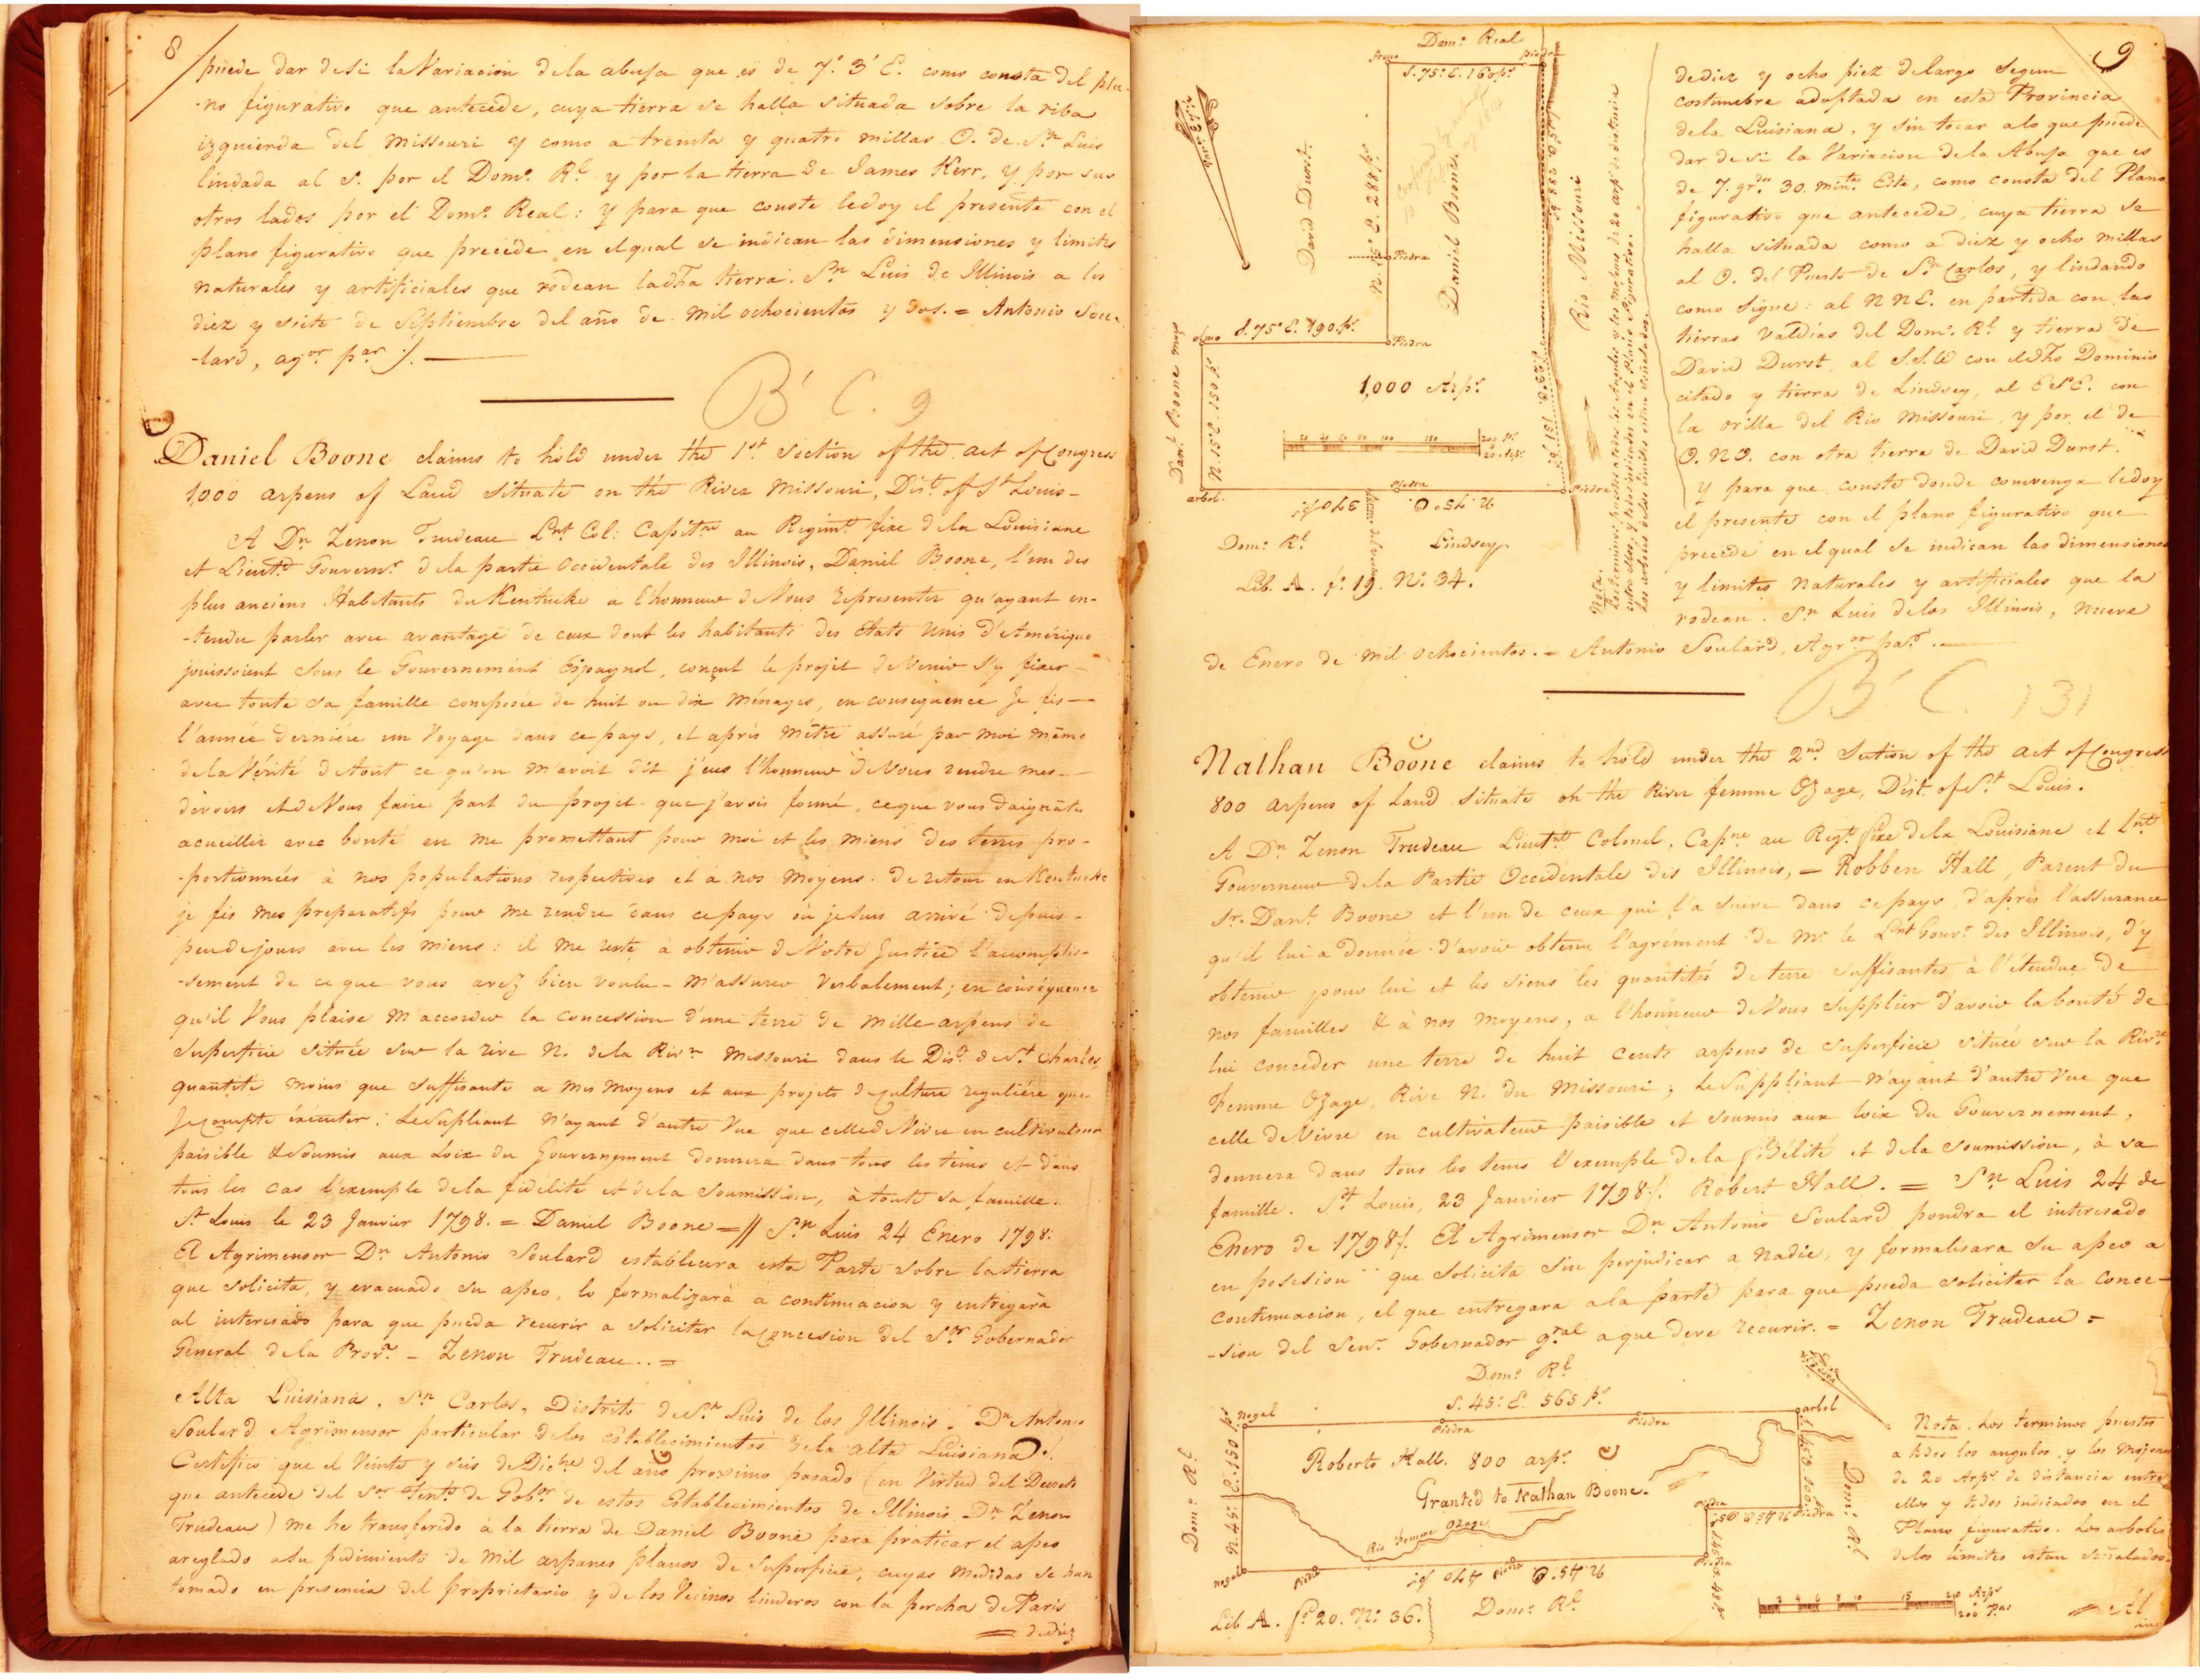 8
puede dar de si la Variacion de la abuja que es de 7.° 3' E. como consta del pla-
-no figurativo que antecede, cuya tierra se halla situada sobre la riba
izquierda del Missouri y como a treinta y quatro millas O. de Sn. Luis
lindada al S. por el Dom.° Rl. y por la tierra de James Kerr, y por sus
otros lados por el Dom.° Real: y para que conste le doy el presente con el
plano figurativo que precede en el qual se indican las dimensiones y limites
naturales y artificiales que rodean la dha tierra. Sn. Luis de Illinois a los
diez y siete de Septiembre del año de mil ochocientos y dos. = Antonio Sou-
-lard, agor. par.
B' C. 9
Daniel Boone claims to hold under the 1st Section of the act of Congress
1,000 arpens of Land situate on the River Missouri, Dist. of St Louis -
A Dn Zenon Trudeau Lnt Col: Capitne au Regimt fixe de la Louisiane
et Lieutt Gouvernr de la partie Occidentale des Illinois, Daniel Boone, l'un des
plus anciens Habitants du Kentuike a l'honneur de Vous représenter qu'ayant en-
-tendu parler avec avantage de ceux dont les habitants des Etats Unis d'Amérique
jouissoient sous le Gouvernement Espagnol, conçut le projet de Venir s'y fixer -
avec toute sa famille composée de huit ou dix Ménages, en conséquence Je fis -
l'année dernière un Voyage dans ce pays, et après m'être assuré par moi même
de la Vérité de tout ce qu'on m'avoit dit j'eus l'honneur de Vous rendre mes -
devoirs et de Vous faire part du projet que j'avois formé, ce que vous daignâtes
accueillir avec bonté en me promettant pour moi et les miens des terres pro-
-portionnées à nos populations respectives et a nos moyens. De retour en Kentucke
je fis mes preparatifs pour me rendre dans ce pays où je suis arrivé depuis -
peu de jours avec les miens: il me reste à obtenir de Votre Justice l'accomplis-
-sement de ce que vous avez bien voulu - m'assurer verbalement; en conséquence
qu'il Vous plaise m'accorder la concession d'une terre de mille arpens de
superficie située sur la rive N. de la Rivre Missouri dans le Dist. de St Charles,
quantité moins que suffisante a mes moyens et aux projets de culture regulière que
Je compte éxécuter: Le Supliant n'ayant d'autre Vue que celle de Vivre en cultivateur
paisible & Soumis aux Loix du Gouvernement donnera dans tous les tems et dans
tous les cas l'exemple de la fidelité et de la soumission, à toute sa famille.
St Louis le 23 Janvier 1798. = Daniel Boone = // Sn Luis 24 Enero 1798.
El Agrimensor Dn Antonio Soulard establecera esta Parte sobre la tierra
que solicita, y evacuado su apeo, lo formalizarà a continuacion y entregarà
al interesado para que pueda recurir a solicitar la Concesion del Sor Gobernador
General de la Prova. - Zenon Trudeau.. =
Alta Luisiana, Sn Carlos, Distrito de Sn Luis de los Illinois. Dn Antonio
Soulard Agrimensor particular de los establecimientos de la alta Luisiana./.
Certifico que el Veinte y seis de Dicbre del año proximo pasado (en Virtud del Decreto
que antecede del Sor Tente de Gobor de estos Establecimientos de Illinois Dn Zenon
Trudeau) me he transferido à la tierra de Daniel Boone para praticar el apeo
areglado a su pedimiento de mil arpanes planos de Superficie, cuyas medidas se han
tomado en presencia del Proprietario y de los Vecinos linderos con la percha de Paris
= de diez
9
Dom.° Real
fresno
piedra
S. 75.° E. 160 ps.
David Durst.
N. 15.° E. 288 ps.
Daniel Boone
Piedra
Rio Missouri
S. 75° E. 190 ps.
olmo
Piedra
Danl. Boone
N. 15° E. 150 ps.
1,000 Arps.
20 40 60 80 100 150 200 ps.
20 Arps.
arbol.
Piedra
Piedra
N. 75° O. 340 ps.
Dom.° Rl.
Lindsey
Lib. A. f.° 19. N.° 34.
Nota.
Los terminos puestos a todos los Angulos y los mojones de 20 arps de distancia
entre ellos, y todos indicados en el Plano figurativo.
Los arboles de los limites estan señalados.
de diez y ocho piez de largo segun
costumbre adoptada en esta Provincia
de la Luisiana, y sin tocar a lo que puede
dar de si la Variacion de la Abuja que es
de 7. grds 30. mintos Este, como consta del Plano
figurativo que antecede, cuya tierra se
halla situada como a diez y ocho millas
al O. del Puesto de Sn Carlos, y lindando
como sigue: al N N E. en partida con las
tierras Valdias del Dom.° Rl. y tierra de
David Durst, al S.S.W con el dho Dominio
citado y tierra de Lindsey, al E S E. con
la orilla del Rio Missouri, y por el de
O. N O. con otra tierra de David Durst.
y para que conste donde convenga le doy
el presente con el plano figurativo que
precede en el qual se indican las dimensiones
y limites naturales y artificiales que la
rodean. Sn Luis de los Illinois, nueve
de Enero de mil ochocientos. = Antonio Soulard, Agror par.
B' C. 131
Nathan Boone claims to hold under the 2nd Section of the act of Congress
800 arpens of land situate on the River femme Ozage, Dist. of St Louis.
A Dn Zenon Trudeau Lieutnt Colonel, Capne au Regt. fixe de la Louisiane et Lnt
Gouverneur de la Partie Occidentale des Illinois, = Robben Hall, Parent du
Sr. Danl. Boone et l'un de ceux qui l'a suivi dans ce pays, d'après l'assurance
qu'il lui a donnée d'avoir obtenu l'agrément de Mr le Lnt Gouvr des Illinois, d'y
obtenir pour lui et les siens les quantités de terre suffisantes à l'étendue de
nos familles & à nos moyens, a l'honneur de Vous supplier d'avoir la bonté de
lui conceder une terre de huit cents arpens de superficie située sur la Rivre
Femme Ozage, Rive N. du Missouri; le Suppliant n'ayant d'autre Vue que
celle de Vivre en cultivateur paisible et soumis aux loix du Gouvernement,
donnera dans tous les tems l'exemple de la fidélité et de la soumission, à sa
famille. St Louis, 23 Janvier 1798/. Robert Hall. = Sn Luis 24 de
Enero de 1798/. El Agrimensor Dn Antonio Soulard pondra el interesado
en posesion que solicita sin perjudicar a nadie, y formalisara su apeo a
continuacion, el que entregara a la parte para que pueda soliciter la conce-
-sion del Senr. Gobernador gral a que deve recurir. = Zenon Trudeau =
Dom.° Rl.
S. 45.° E. 565 ps.
Nogal
Piedra
Piedra
arbol
Dom.° Rl.
N. 45.° E. 150 ps.
Roberto Hall. 800 arps.
Granted to Nathan Boone.
Rio Femme Ozage
Piedra
Piedra
Piedra
Dom.° Rl.
nogal
Piedra
N. 45.° O. 470 ps.
Piedra
Dom.° Rl.
Lib A. f.° 20. N.° 36.
2 4 6 8 10 15 20 Arps
200 Pas
Nota. Los terminos puestos
a todos los angulos y los Mojones
de 20 Arps. de distancia entre
ellos y todos indicados en el
Plano figurativo. Los arboles
de los limites estan señalados.